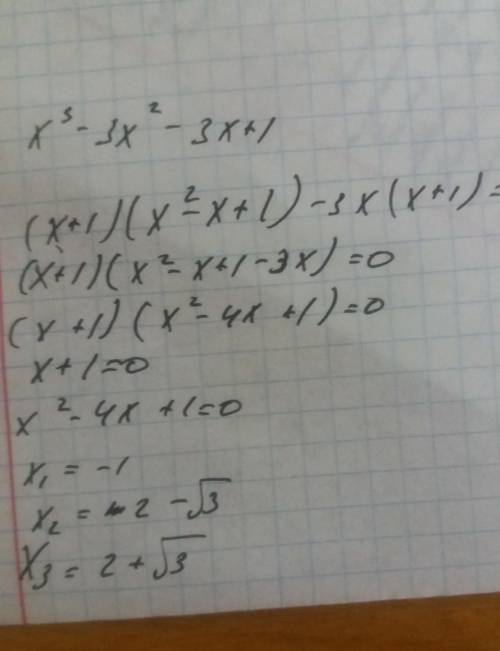 x³ - 3x² - 3x + 1
(x+1)(x² - x + 1) - 3x(x+1) =
(x+1)(x² - x + 1 - 3x) = 0
(x+1)(x² - 4x + 1) = 0
x + 1 = 0
x² - 4x + 1 = 0
x₁ = -1
x₂ = 2 - √3
x₃ = 2 + √3